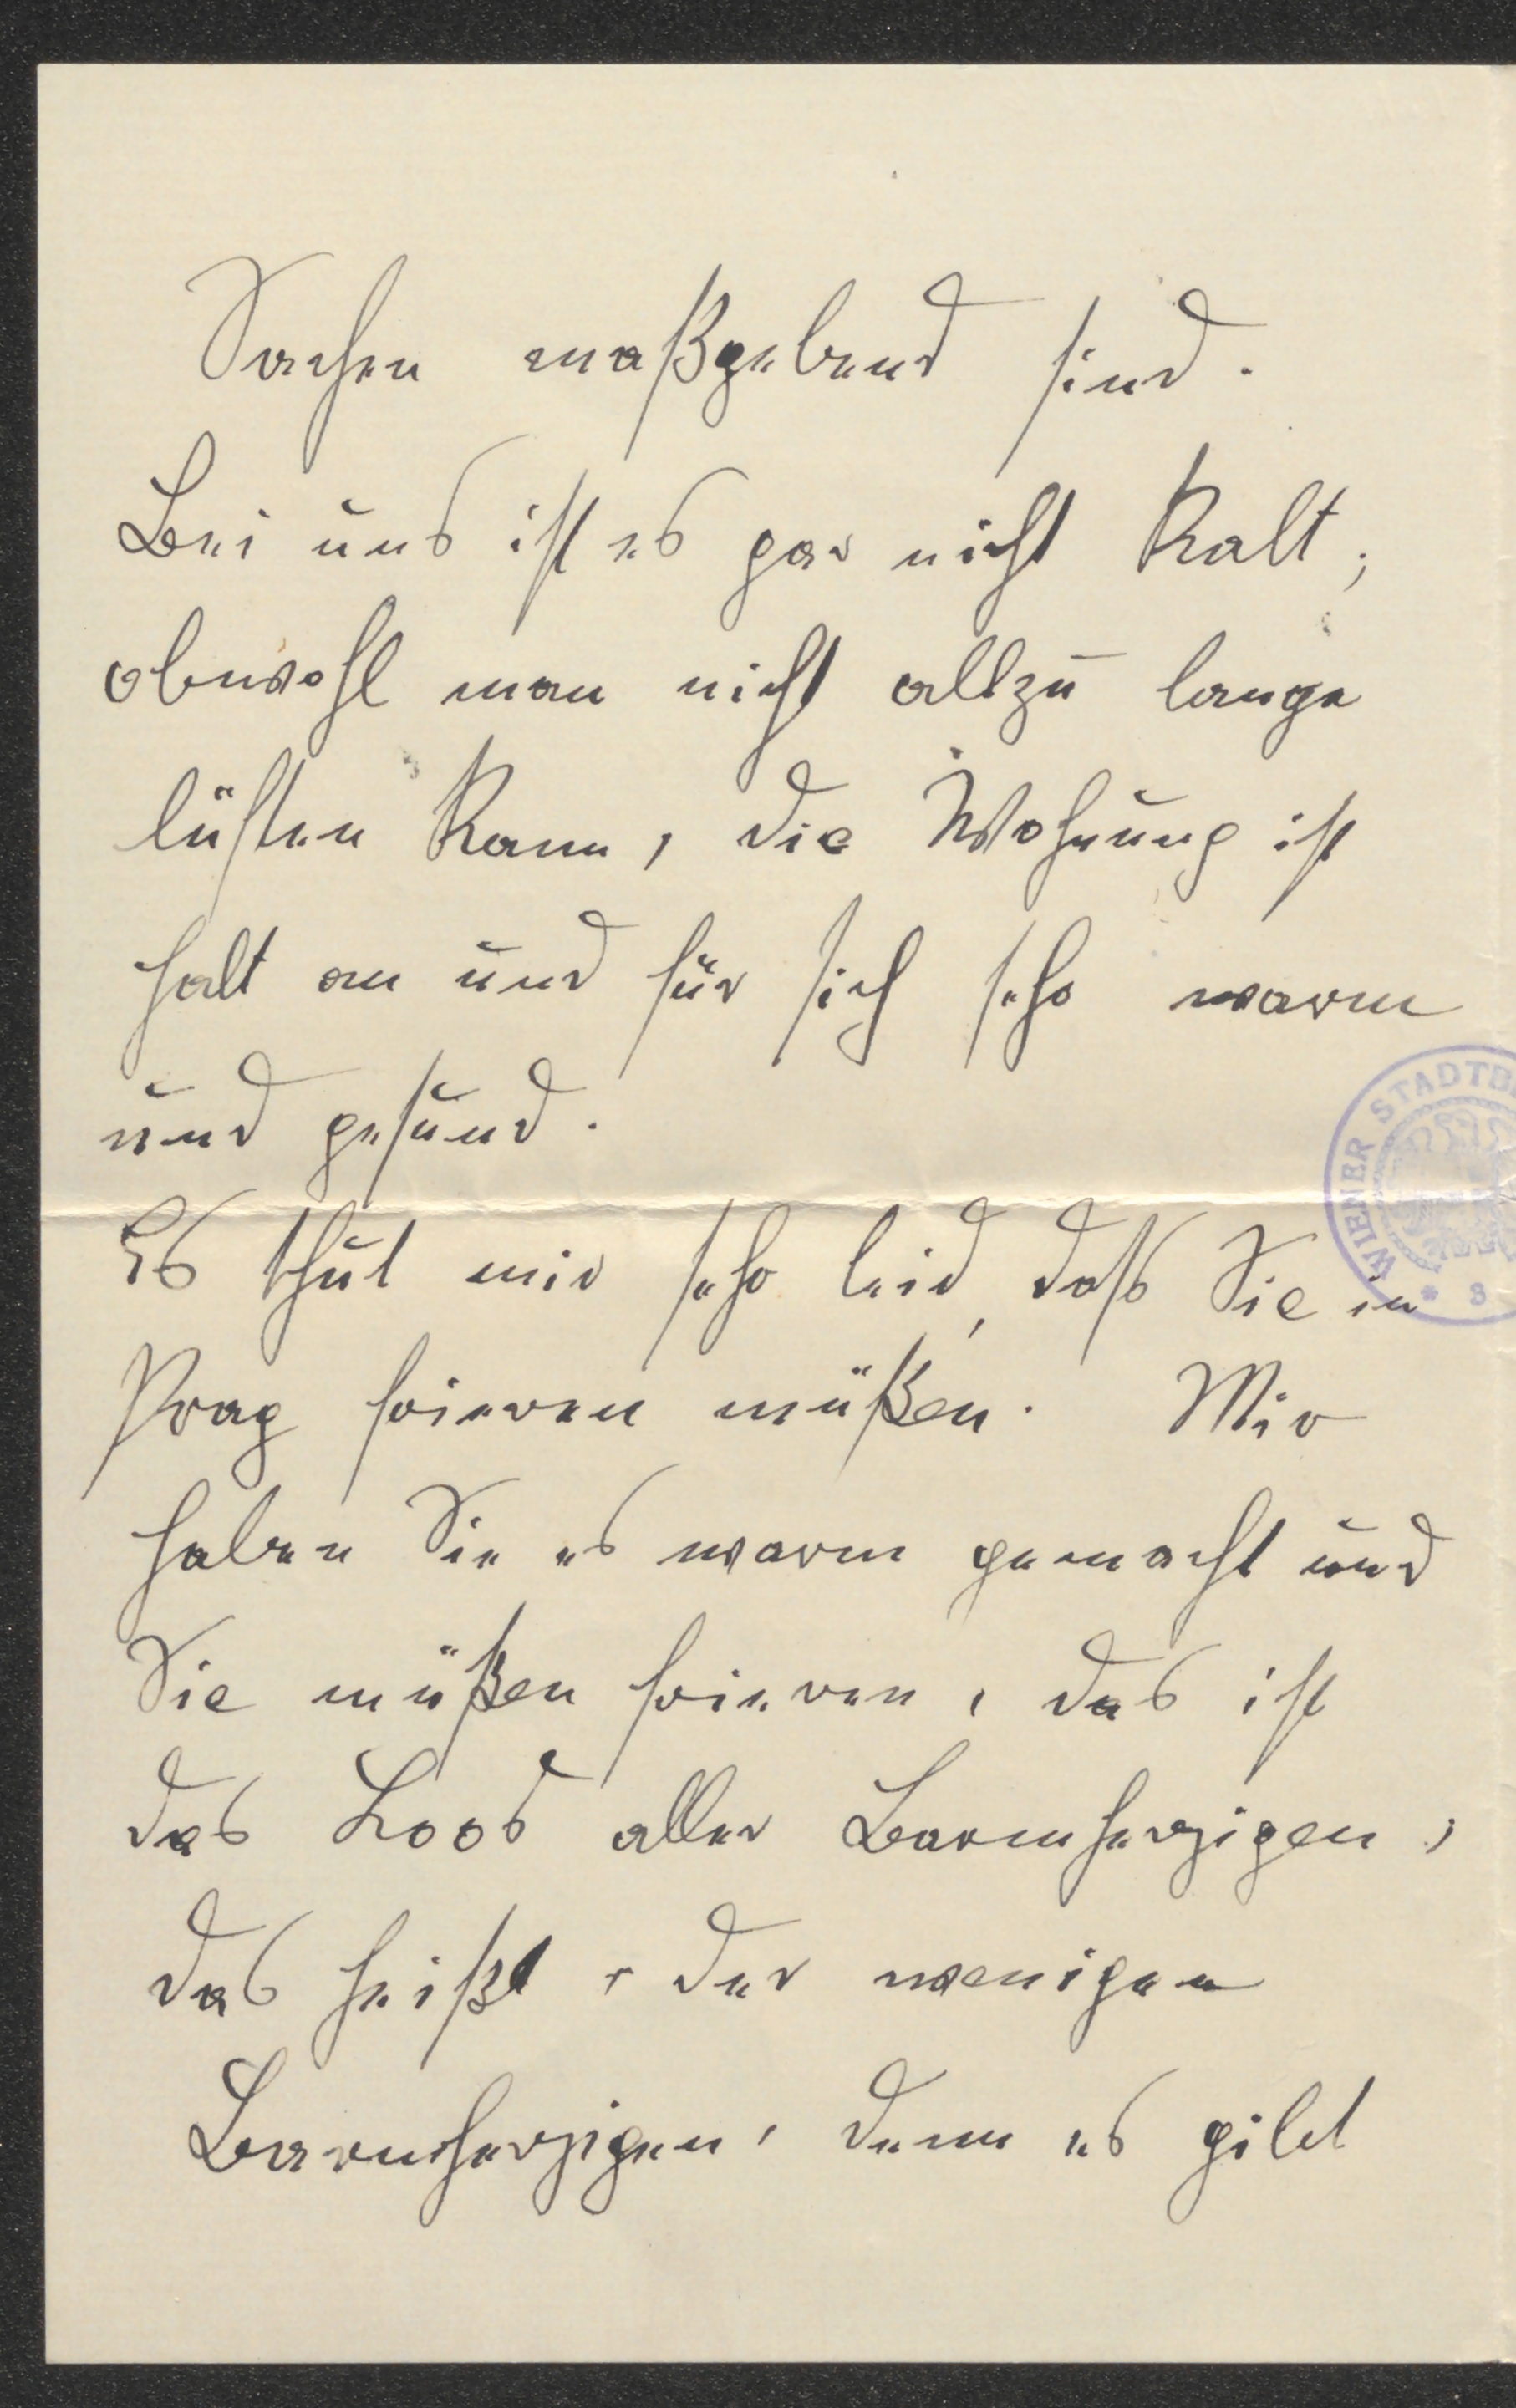 Sachen maßgebend sind.
Bei uns ist es gar nicht kalt;
obwohl man nicht allzu lange
lüften kann, die Wohnung ist
halt an und für sich sehr warm
und gesund.
Es thut mir sehr leid, daß Sie in
Prag frieren müßen. Mir
haben Sie es warm gemacht und
Sie müßen frieren, das ist
das Loos aller Barmherzigen,
das heißt, der wenigen
Barmherzigen, denn es gibt
WIENER STADTB